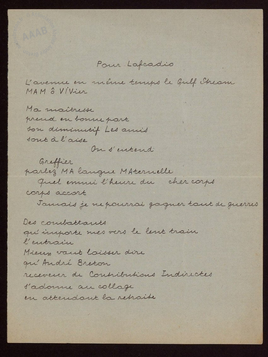 Pour Lafcadio
L'avenue en même temps le Gulf Stream
MAM & VIVier
Ma maîtresse
prend en bonne part
son diminutif Les amis
sont à l'aise
On s'entend
Greffier
parlez MA langue MAternelle
Quel ennui l'heure du cher corps
corps accort
Jamais je ne pourrai gagner tant de guerres
Des combattants
qu'importe mes vers le lent train
l'entrain
Mieux vaut laisser dire
qu'André Breton
receveur de Contributions Indirectes
s'adonne au collage
en attendant la retraite